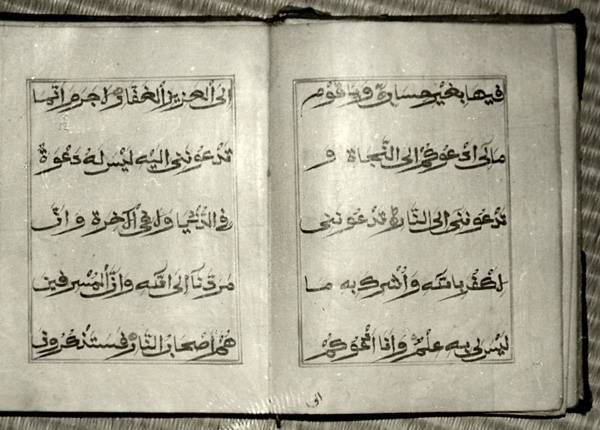 فيها بغير حساب ويا قوم
ما لى ادعوكم الى النّجاة و
تدعوننى الى النار تدعوننى
لاكفر بالله واشرك به ما
ليس لى به علم وانا ادعوكم
الى
الى العزيز الغفار لا جرم انما
تدعوننى اليه ليس له دعوة
فى الدّنيا ولا فى الاخرة وانّ
مردّنا الى الله وانّ المسرفين
هم اصحاب النّار فستذكرون